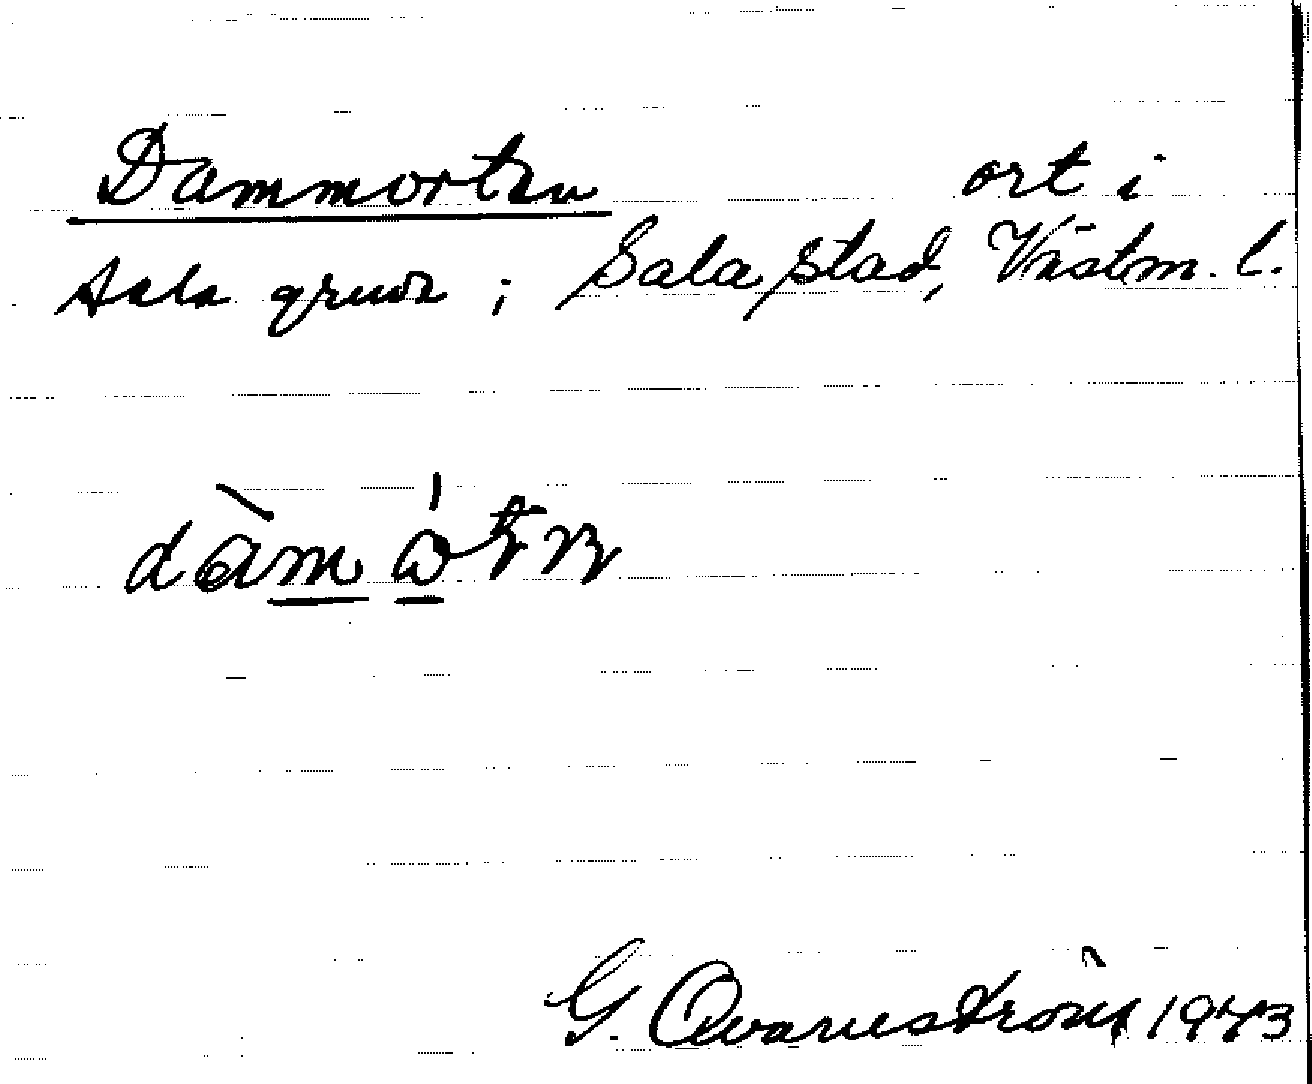 Dammorten ort i
Sala gruva ; Sala stad, Västm. l.
G. Qvarnström 1943